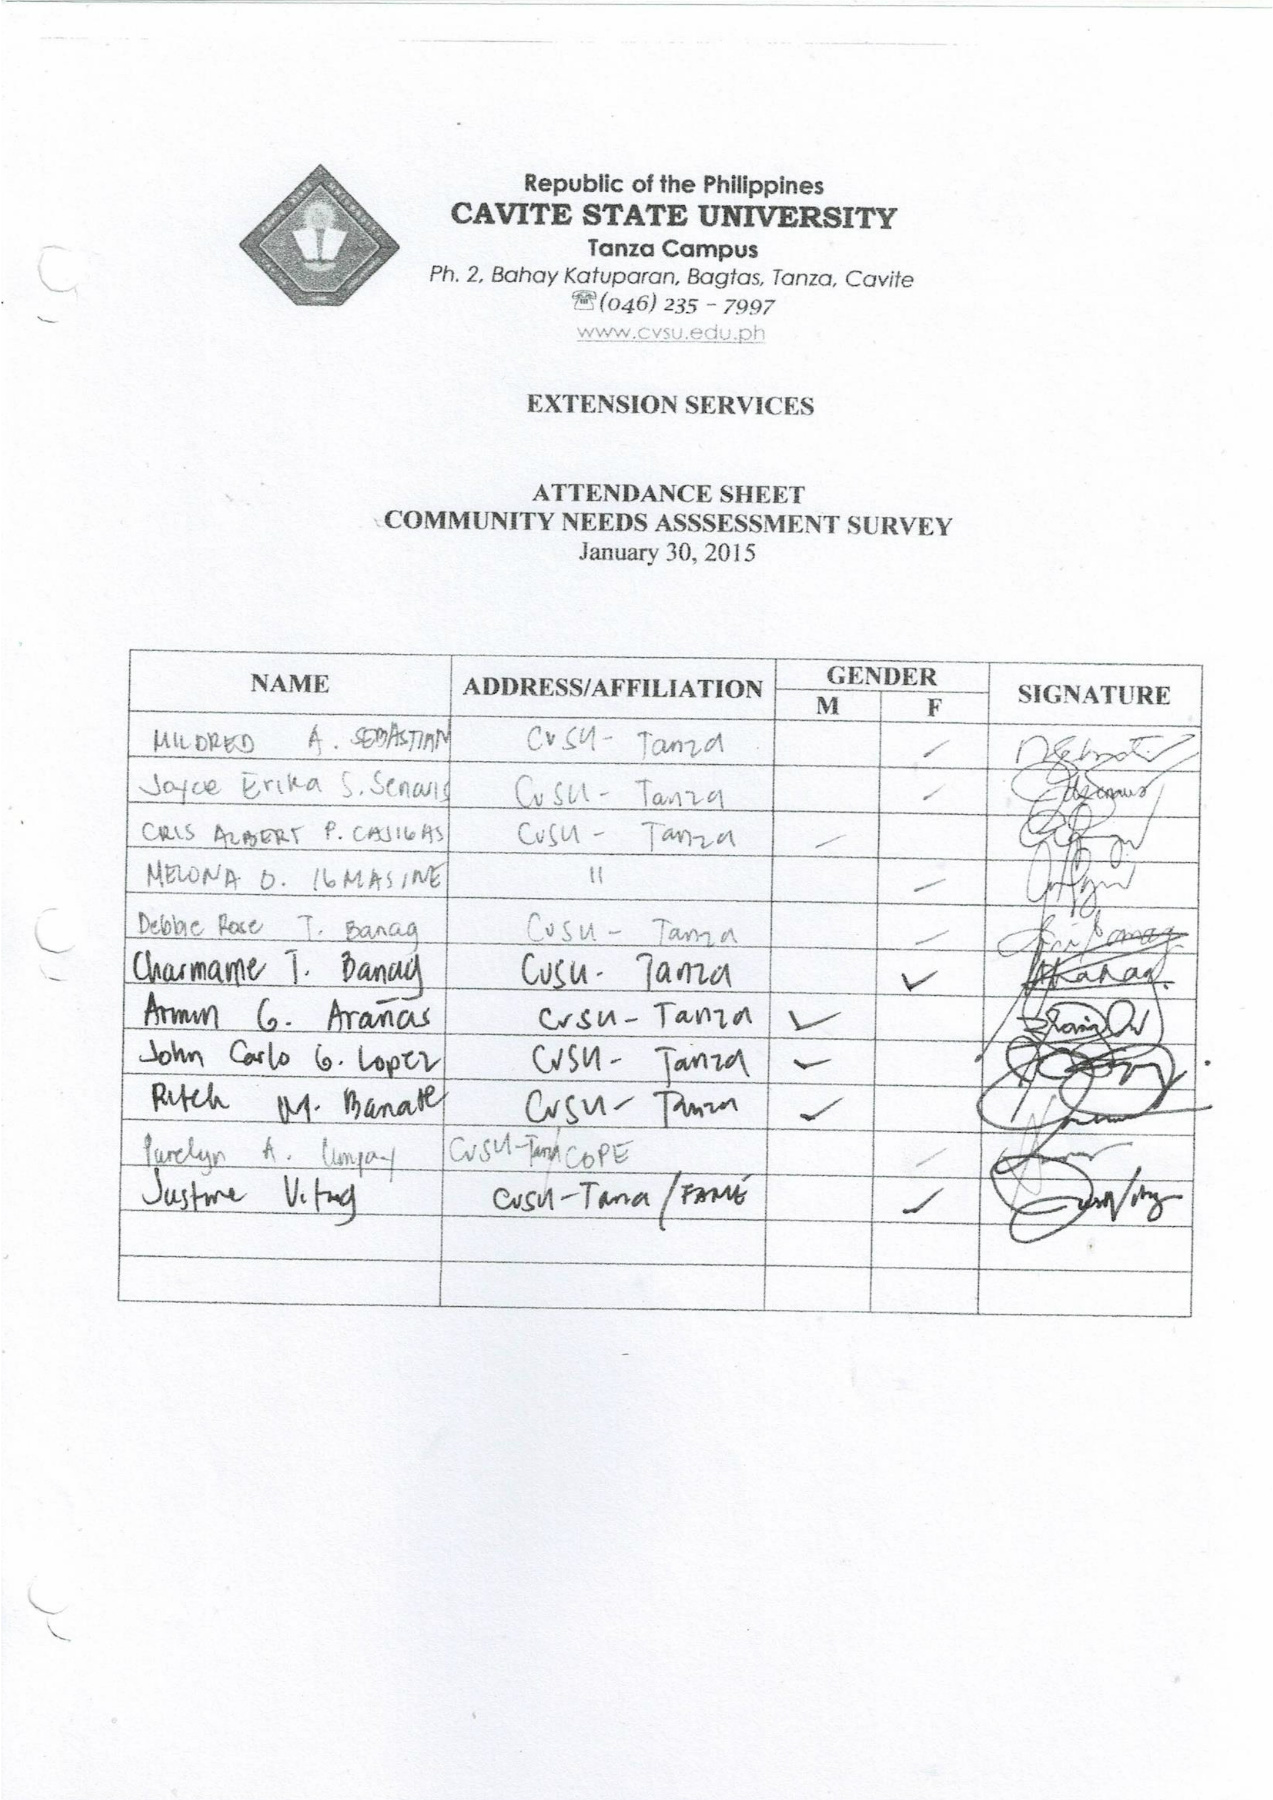 Republic of the Philippines
CAVITE STATE UNIVERSITY
Tanza Campus
Ph. 2, Bahay Katuparan, Bagtas, Tanza, Cavite
☎(046) 235 – 7997
www.cvsu.edu.ph
EXTENSION SERVICES
ATTENDANCE SHEET
COMMUNITY NEEDS ASSSESSMENT SURVEY
January 30, 2015
NAME ADDRESS/AFFILIATION GENDER SIGNATURE
M F
MILDRED A. SEBASTIAN CvSU- Tanza
Joyce Erika S. Senaris CvSU- Tanza
CRIS ALBERT P. CASIGAS CvSU- Tanza
MELONA O. IGMASINE "
Debbie Rose T. Banag CvSU- Tanza
Charmaine T. Banag CvSU- Tanza
Armin G. Arañas CvSU- Tanza
John Carlo G. Lopez CvSU- Tanza
Ritch M. Banate CvSU- Tanza
A. CvSU-Tanza/COPE
Justine Vitug CvSU-Tanza /FAME